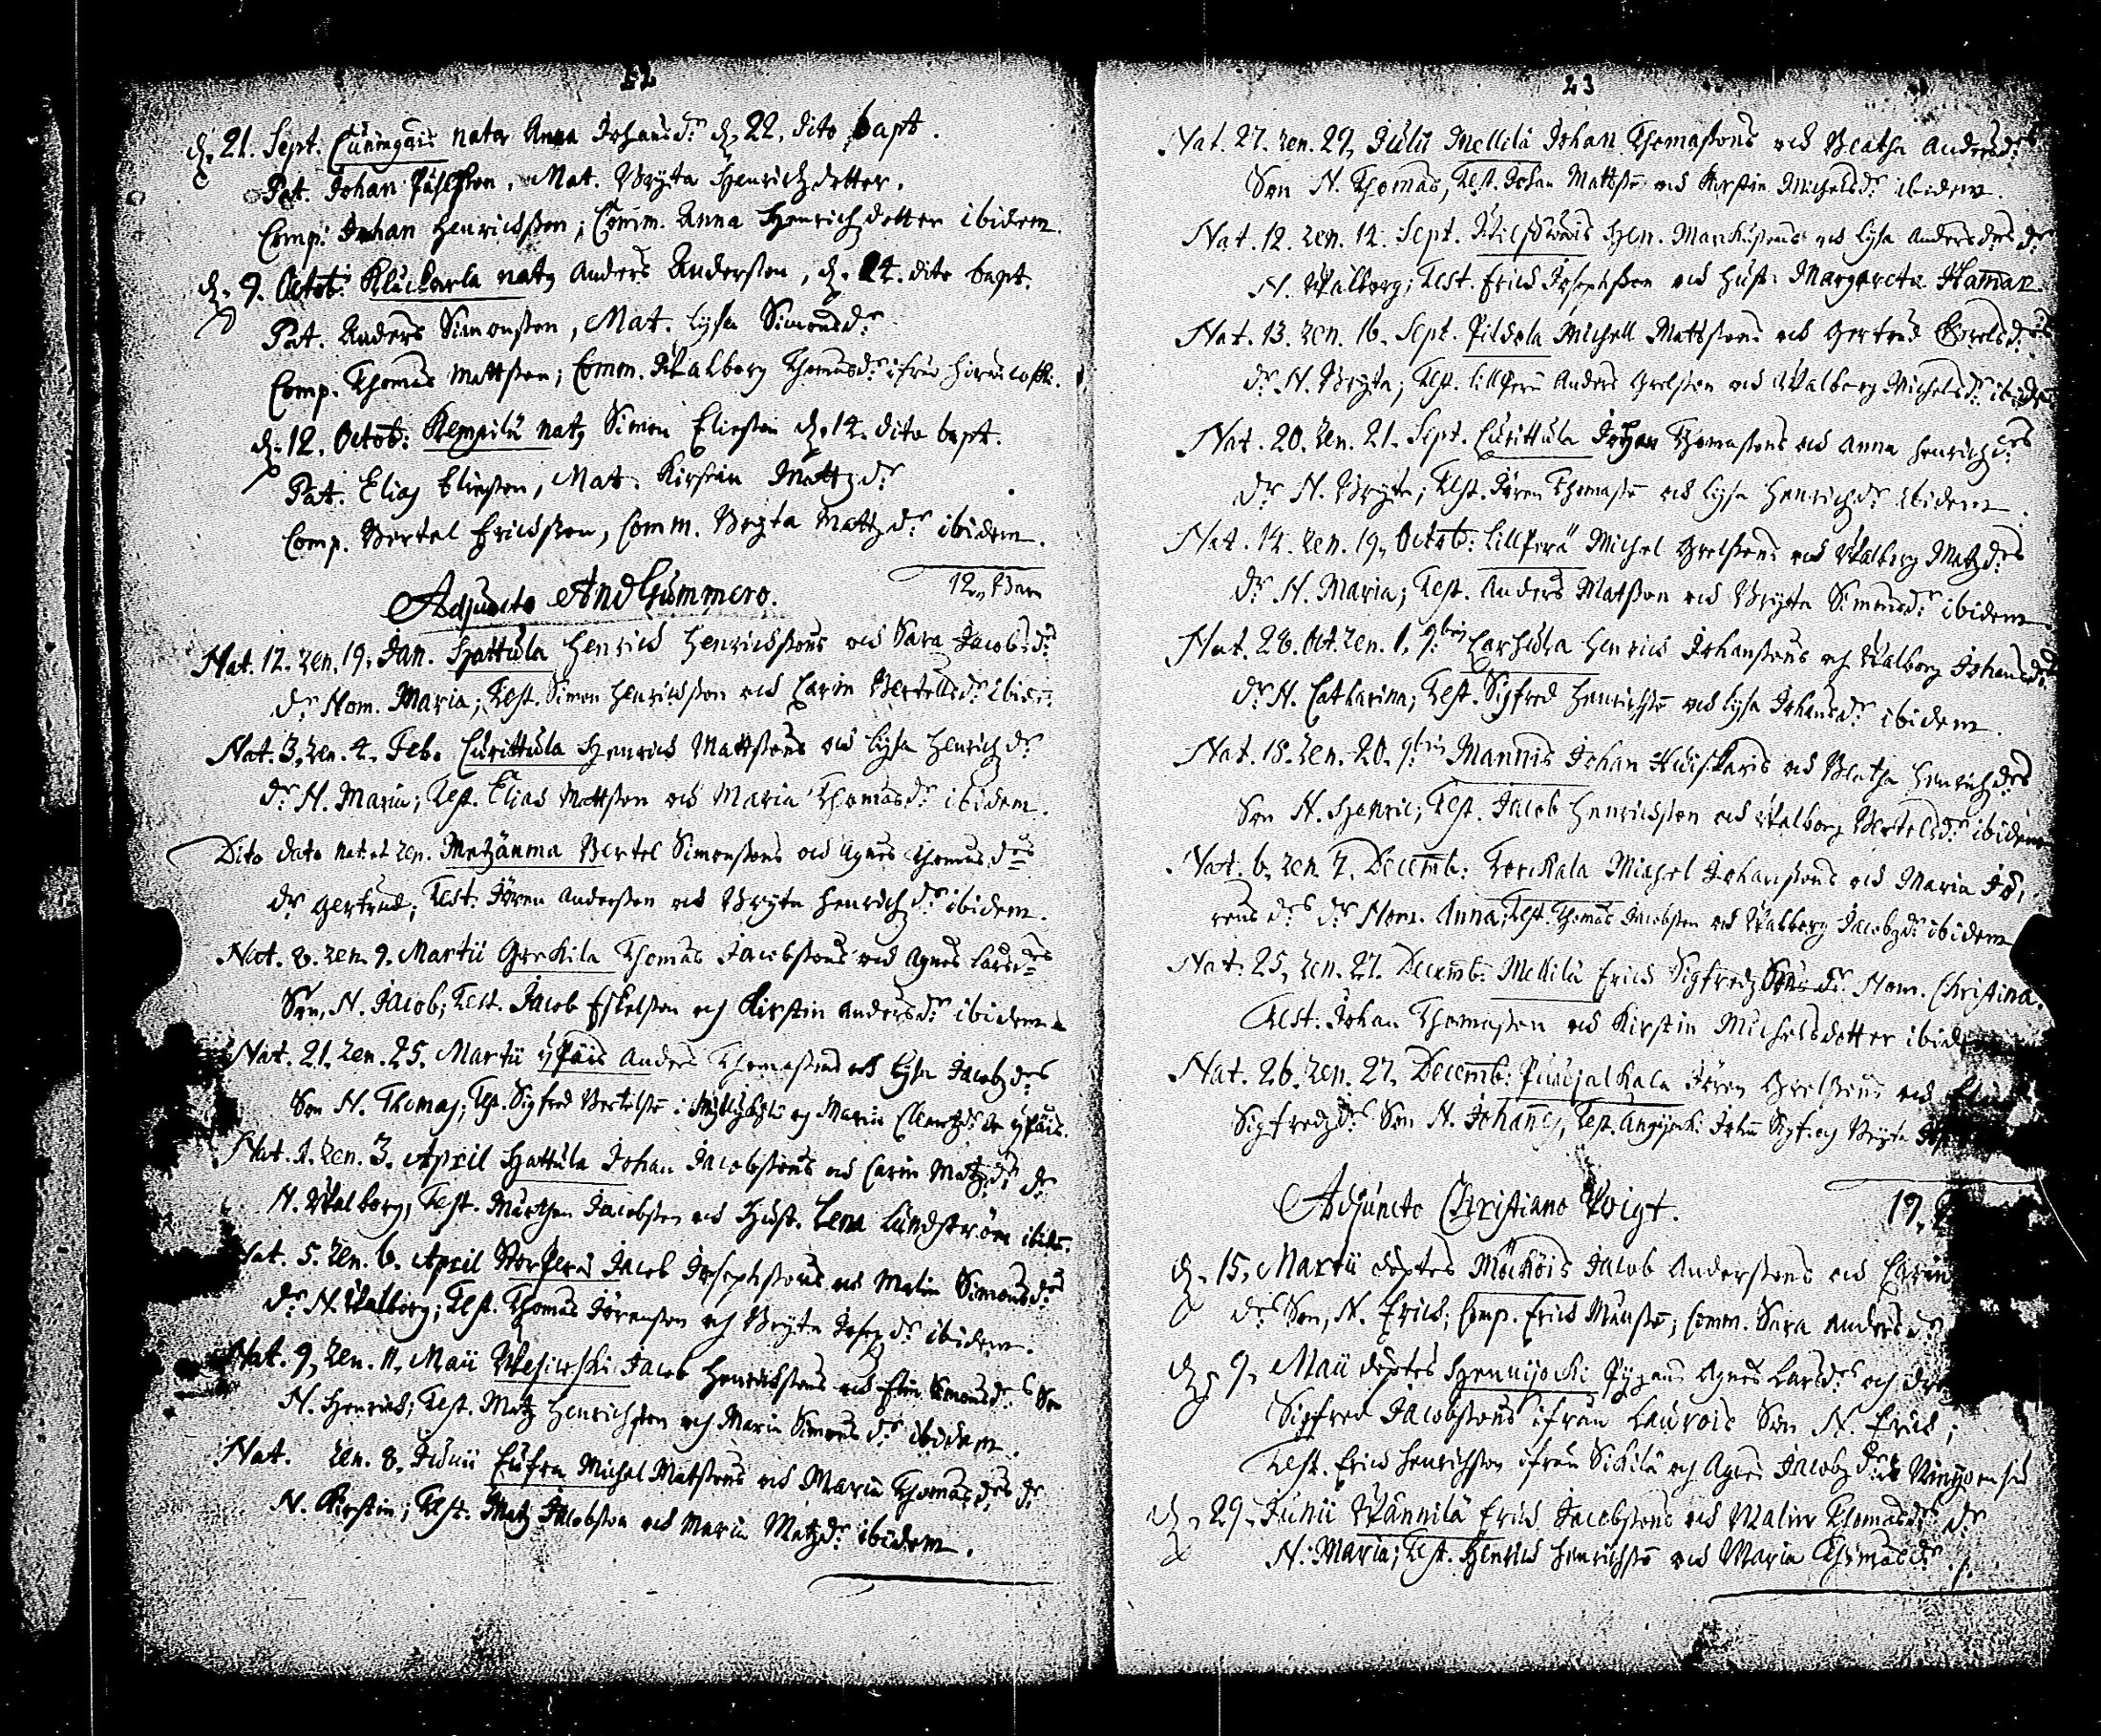 22
d. 21. Sept. Cuningais nata Anna Johansdr. d. 22. dito bapt.
Pat. Johan Påhlsson, Mat. Bryta Henrichdotter.
Comp. Johan Henrichsson; Comm. Anna Henrichdotter ibidem.
d. 9. Octob: Kluckarla natq Anders Andersson, d. 14. dito bapt.
Pat. Anders Simonsson, Mat. Lysa Simonsdr.
Comp. Thomas Mattsson; Comm. Walborg Thomasdr. ifrån
d. 12. Octob: Kempilä natq Simon Eliesson d. 14. dito bapt.
Pat. Elias Eliesson, Mat. Kirstin Mattzdr
Comp. Bertel Erichsson, Comm. Bryta Mattzdr ibidem.
12. Barn
Adjuncto And Gummero.
Nat. 12. ren. 19. Jan. Hattula Henrich Henrichssons och Sara Jacobsdrs
dr Nom. Maria; Test. Simon Henrichsson och Carin Bertellsdr. ibid:
Nat. 3. ren. 4. Feb. Curittula Henrich Mattssons och Lysa Henrichdr
dr N. Maria; Test. Elias Mattsson och Maria Thomasdr. ibidem.
Dito dato nat. et ren. Metzänma Bertel Simonssons och Agnes Thomasdrs
dr Gertrud; Test. Jören Andersson och Bryta Henrichdr. ibidem.
Nat. 8. ren. 9. Martii Gorkila Thomas Jacobssons och Agnes Larsdrs
Son, N. Jacob; Test. Jacob Eskelsson och Kirstin Andersdr. ibidem
Nat. 21. ren. 25. Martii ÿpäis Anders Thomassons och Lysa Jacobzdrs
Son N. Thomas; Test. Sigfred Bertelsson i och Maria Clemetzdr. de ÿpäis.
Nat. 2. ren. 3. April Hattula Johan Jacobssons och Carin Matzdrs dr
N. Walborg, Test. Mårthen Jacobsson och Hust. Lena Lundström ibid.
Nat. 5. ren. 6. April Storperä Jacob Josephssons och Malin Simonsdrs
dr N. Walborg; Test. Thomas Jörensson och Bryta Josepdr. ibidem.
Nat. 9. ren. 11. Maii Jacob Henrichssons och Elin Simonsdrs Son
N. Henrich; Test. Matz Henrichsson och Maria Simonsdr. ibidem.
Nat. ren. 8. Junii Eufra Michel Matssons och Maria Thomasdrs dr
N. Kirstin; Test. Matz Jacobsson och Maria Matzdr. ibidem.
23
Nat. 27. ren. 29. Julii Mellilä Johan Thomassons och Beatha Andersdrs
Son N. Thomas, Test. Johan Mattsson och Kirstin Michelsdr. ibidem.
Nat. 12. ren. 14. Sept. Hen. Markussons och Lysa Andersdrs dr
N. Walborg; Test. Erich Josephsson och Hust. Margareta Haman.
Nat. 13. ren. 16. Sept. Pildola Michell Mattssons och Gertrud Grelsdrs
dr N. Bryta; Test. Lillperä Anders Grelsson och Walborg Michelsdr. ibidem
Nat. 20. ren. 21. Sept. Curittula Johan Thomassons och Anna Henrichdrs
dr N. Bryta; Test. Jören Thomasson och Lysa Henrichdr. ibidem.
Nat. 14. ren. 19. Octob: Lillperä Michel Grelssons och Walborg Matzdrs
dr N. Maria; Test. Anders Matsson och Bryta Simonsdr. ibidem
Nat. 26. Oct. ren. 1. 9bris Carhula Henrich Johanssons och Walborg Johansdrs
dr N. Catharina; Test. Sigfred Henrichsson och Lysa Johansdr. ibidem.
Nat. 18. ren. 20. 9bris Mannis Johan och Beatha Henrichdrs
Son N. Henric; Test. Jacob Henrichsson och Walborg Bertelsdr. ibidem
Nat. 6. ren. 7. Decemb: Torckala Michel Johanssons och Maria Jö,
rens drs dr Nom. Anna; Test. Thomas Jacobsson och Walborg Jacobzdr ibidem
Nat. 25. ren. 27. Decemb: Mellilä Erich Sigfredz Sons dr. Nom. Christina.
Test. Johan Thomasson och Kirstin Michelsdotter ibid
Nat. 26. ren. 27. Decemb: Puujalkala Jören Grelssons och
Sigfredzdr. Son N. Johanes, Test. Johan Sigf. och Bryta
Adjuncto Christiano Voigt.
19.
d. 15. Martii döptes Mäköis Jacob Anderssons och Carin
drs Son, N. Erich; Comp. Erich Månsson; Comm. Sara Andersdr
d. 9. Maii döptes Hennijocki Pygan Agnes Larsdrs och
Sigfred Jacobssons ifrån Laurois Son N. Erich;
Test. Erich Henrichsson ifrån Sikilä och Agnes Jacobzdr.
d. 29. Junii Wännilä Erich Jacobssons och Malin Thomasdrs dr
N. Maria; Test. Henrich Henrichsson och Maria Thomasdr.